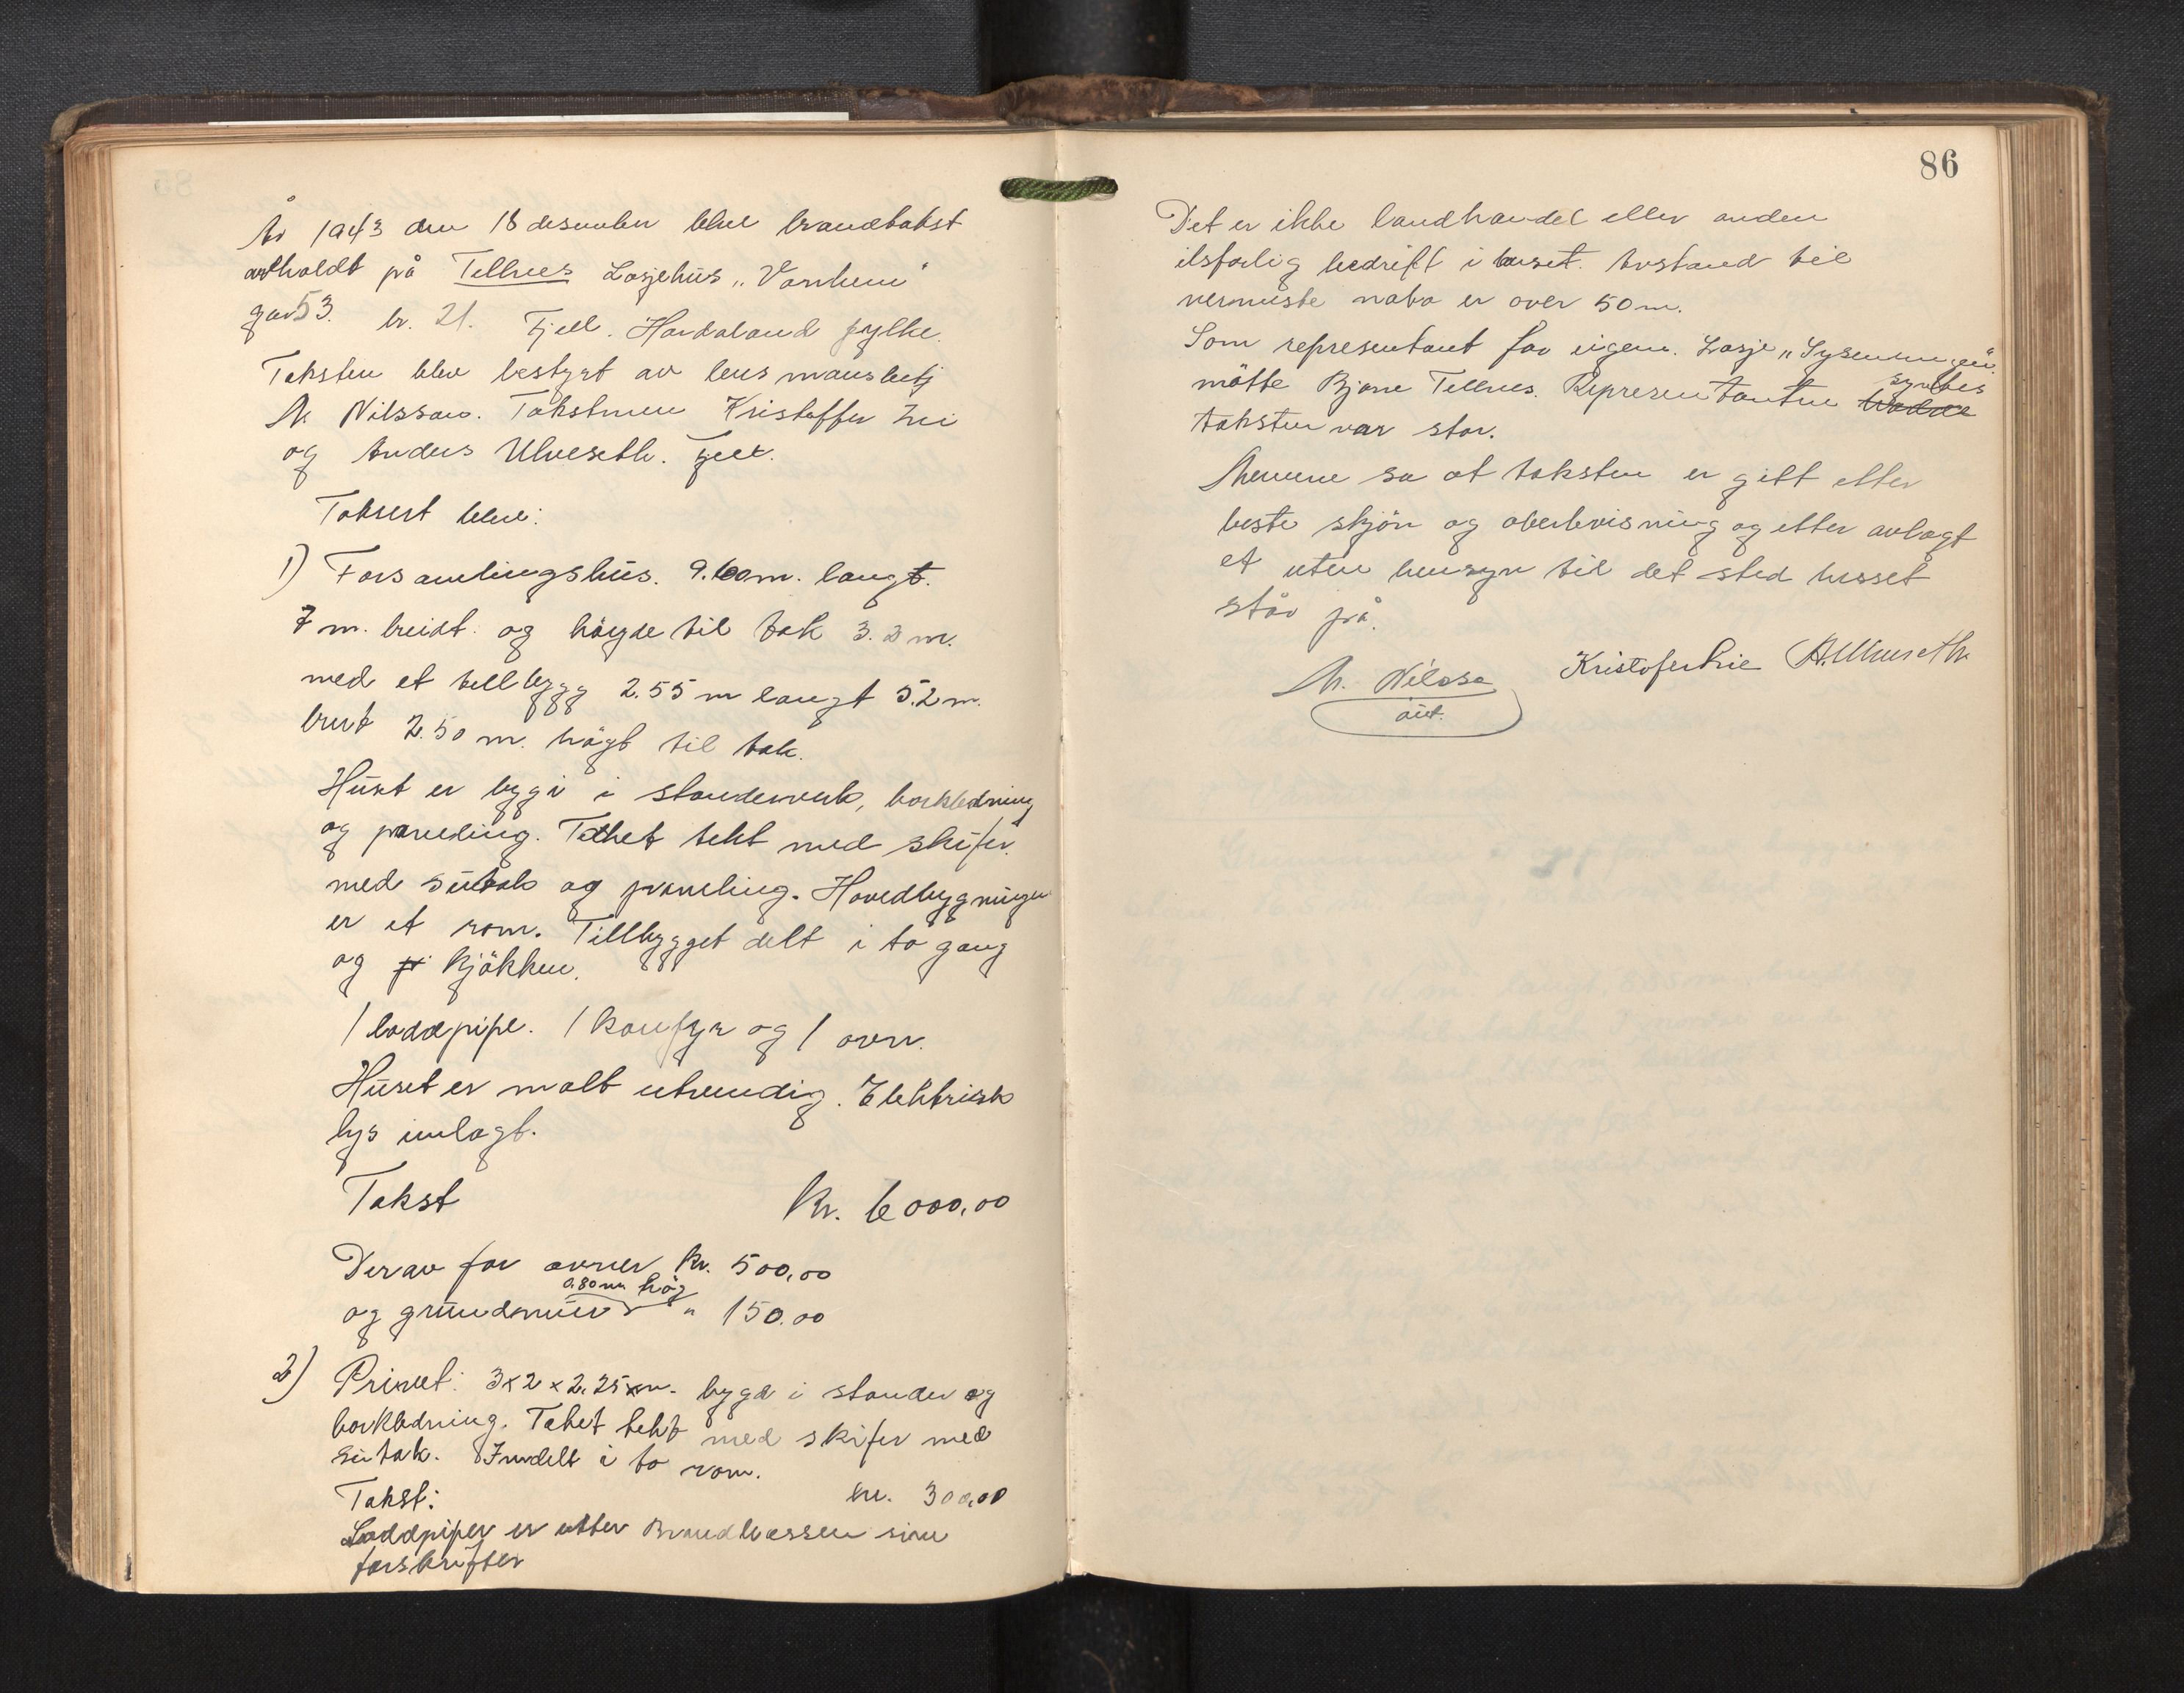 År 1943 den 18 desember blev brandtakst
avholdt på Tellnes Losjehus „Varheim"
gnr 53. br. 21. Fjell. Hordaland fylke.
Taksten blev bestyrt av lensmansbetj
M. Nilssen. Takstmen Kristoffer Lie
og Anders Ulveseth. Fjell.
Taksert blev:
1) Forsamlingshus. 9.60 m. langt.
7 m. breidt og høyde til tak 3.3 m.
med et tellbygg 2.55 m langt 5.2 m.
breit 2.50 m. högt til tak.
Huset er bygd i standerverk, borkledning
og paneling. Taket tekt med skifer
med sutak og paneling. Hovedbygningen
er et rom. Tillbygget delt i to gang
og kjökken.
1 loddpipe. 1 komfyr og 1 ovn.
Huset er malt utvendig. Elektrisk
lys innlagt.
Takst Kr. 6000,00
Derav for ovner kr. 500,00
0.80 m høg
og grundmur " 150.00
2) Privet: 3x2x2.25 m. bygd i stander og
borkledning. Taket tekt med skifer med
sutak. Inndelt i to rom.
Takst: kr. 300,00
Loddpiper er etter Brandkassen sine
forskrifter
86
Det er ikke landhandel eller anden
ilsfarlig bedrift i huset. Avstand til
nermeste nabo er over 50 m.
Som representant for eigeren. Losje
møtte Bjarne Tellnes. Representanten syntes
taksten var stor.
Mennene sa at taksten er gitt etter
beste skjön og overbevisning og etter avlagt
ed uten hensyn til det sted husset
står på.
M. Nilssen Kristofer Lie A. Ulveseth
aut.